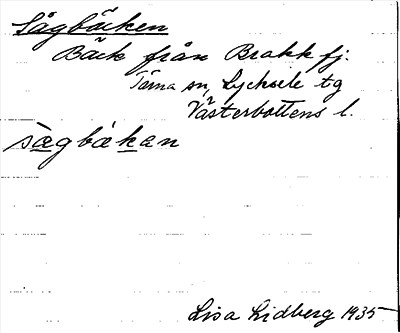 Sågbäcken
Bäck från Brakk fj.
Tärna sn, Lycksele tg
Västerbottens l.
sàgbákan
Lisa Lidberg 1935